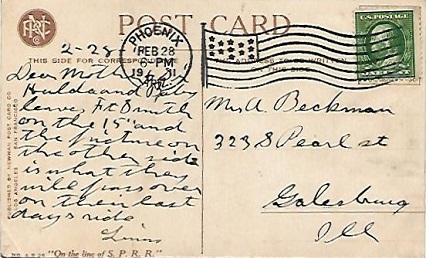 POST CARD
PNC
THIS SIDE FOR CORRESPONDENCE
TO BE WRITTEN
ON THIS SIDE
PHOENIX
FEB 28
PM
1911
ARIZ.
U.S. POSTAGE
2-28
Dear Mother
Hulda and
leave, Ft. Smith
on the 15" and
the picture on
the other side
is what they
will pass over
on their last
days ride
Mrs A Beckman
323 S Pearl st
Galesburg
Ill
PUBLISHED BY NEWMAN POST CARD CO.
LOS ANGELES SAN FRANCISCO
"On the line of S. P. R. R."